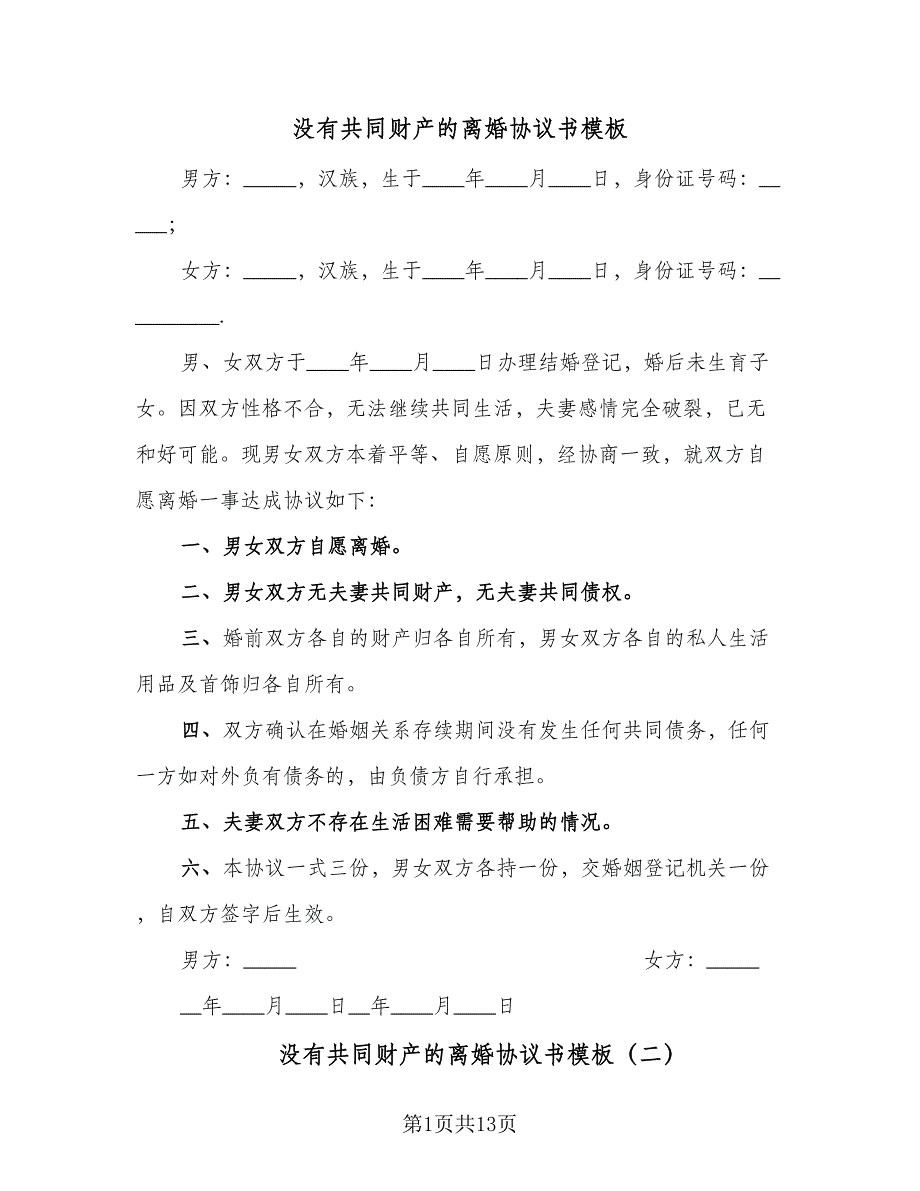 没有共同财产的离婚协议书模板
男方：_____，汉族，生于____年____月____日，身份证号码：__
___;
女方：_____，汉族，生于____年____月____日，身份证号码：__
________.
男、女双方于____年____月____日办理结婚登记，婚后未生育子
女。因双方性格不合，无法继续共同生活，夫妻感情完全破裂，已无
和好可能。现男女双方本着平等、自愿原则，经协商一致，就双方自
愿离婚一事达成协议如下：
一、男女双方自愿离婚。
二、男女双方无夫妻共同财产，无夫妻共同债权。
三、婚前双方各自的财产归各自所有，男女双方各自的私人生活
用品及首饰归各自所有。
四、双方确认在婚姻关系存续期间没有发生任何共同债务，任何
一方如对外负有债务的，由负债方自行承担。
五、夫妻双方不存在生活困难需要帮助的情况。
六、本协议一式三份，男女双方各持一份，交婚姻登记机关一份
，自双方签字后生效。
男方：_____ 女方：_____
__年____月____日__年____月____日
没有共同财产的离婚协议书模板（二）
第1页共13页